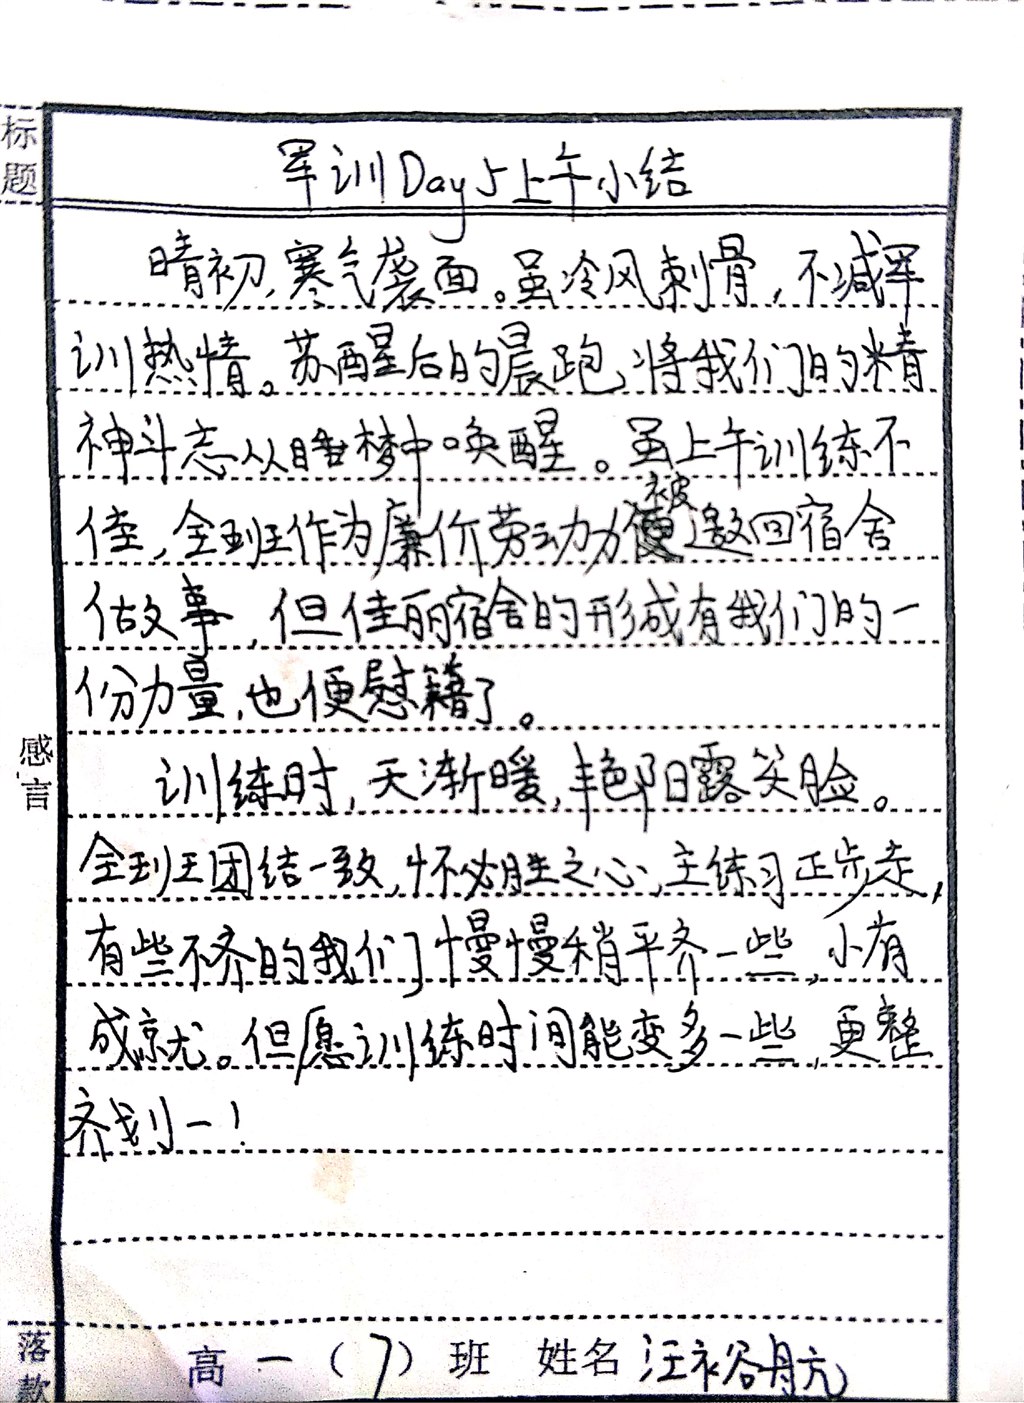 标题
军训Day5上午小结
晴初,寒气袭面。虽冷风刺骨,不减军
训热情。苏醒后的晨跑,将我们的精
神斗志从睡梦中唤醒。虽上午训练不
佳,全班作为廉价劳动力被邀回宿舍
做事,但佳丽宿舍的形成有我们的一
份力量,也便慰籍了。
感言
训练时,天渐暖,艳阳露笑脸。
全班团结一致,怀必胜之心,主练习正步走,
有些不齐的我们慢慢稍平齐一些,小有
成就。但愿训练时间能变多一些,更整
齐划一!
落款
高一(7)班 姓名 汪裕航